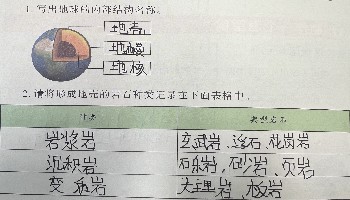 1. 写出地球的内部结构名称。
地壳
地幔
地核
2. 请将形成地壳的岩石种类记录在下面表格中。
种类 典型岩石
岩浆岩 玄武岩、浮石、花岗岩
沉积岩 石灰岩、砂岩、页岩
变质岩 大理岩、板岩